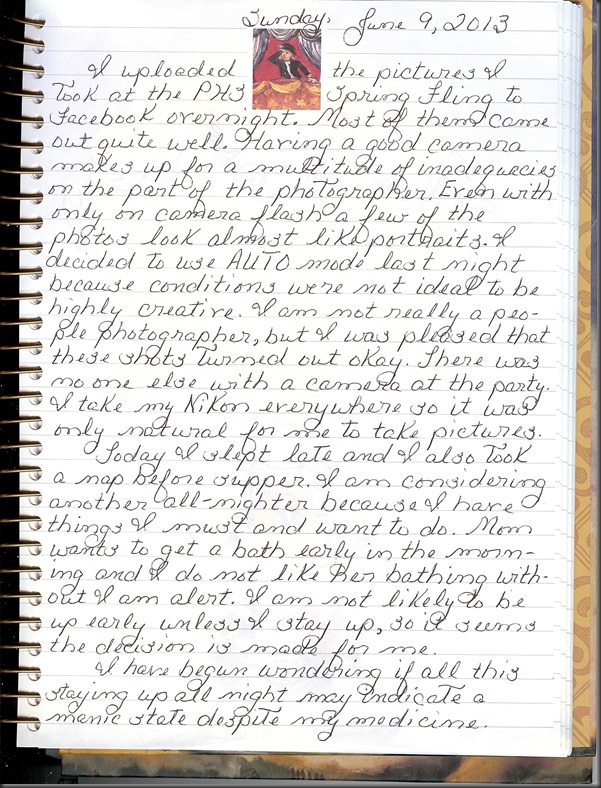 Sunday, June 9, 2013
I uploaded the pictures I
took at the PHS Spring Fling to
Facebook overnight. Most of them came
out quite well. Having a good camera
makes up for a multitude of inadequecies
on the part of the photographer. Even with
only on camera flash a few of the
photos look almost like portraits. I
decided to use AUTO mode last night
because conditions were not ideal to be
highly creative. I am not really a peo-
ple photographer, but I was pleased that
these shots turned out okay. There was
no one else with a camera at the party.
I take my Nikon everywhere so it was
only natural for me to take pictures.
Today I slept late and I also took
a nap before supper. I am considering
another all-nighter because I have
things I must and want to do. Mom
wants to get a bath early in the morn-
ing and I do not like her bathing with-
out I am alert. I am not likely to be
up early unless I stay up, so it seems
the decision is made for me.
I have begun wondering if all this
staying up all night may indicate a
manic state despite my medicine.